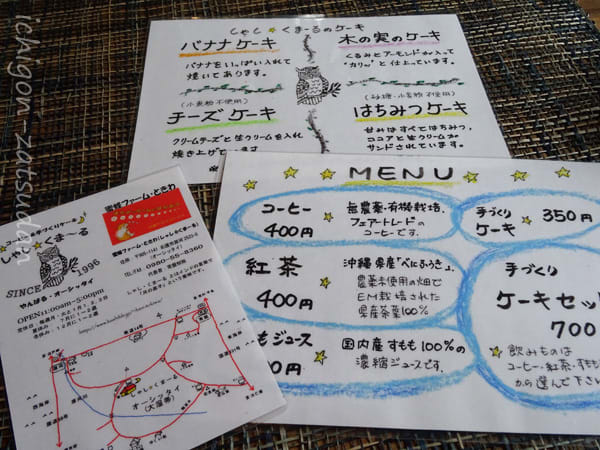 しゃし★くま～るのケーキ
バナナケーキ
バナナをいっぱい入れて
焼いてあります。
木の実のケーキ
くるみとアーモンドが入って
"カリッ"と仕上ています。
(小麦粉不使用)
チーズケーキ
クリームチーズと生クリームを入れ
焼き上げて
(砂糖・小麦粉不使用)
はちみつケーキ
甘みはすべてはちみつ。
ココアと生クリームが
サンドされています。
MENU
コーヒー
400円
無農薬・有機栽培、
フェアートレードの
コーヒーです。
紅茶
400円
沖縄県産「べにふうき」。
農薬未使用の畑で
EM栽培された
県産茶葉100%
もジュース
0円
国内産すもも100%の
濃縮ジュースです。
手づくり
ケーキ
350円
手づくり
ケーキセッ
700
飲みものは
コーヒー・紅茶・すもも
から選んで下さ
くま～る
SINCE 1996
やんばる・オーシッタイ
OPEN 11:00am～5:00pm
蜜蜂ファーム・ときわ
オーシッタイ
(大湿帯)
ichigon-zatsudan